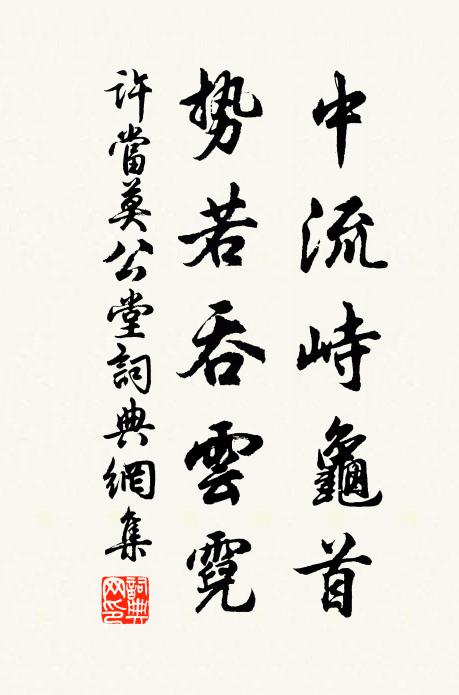 中流峙龜首
勢若吞雲霓
許當莫公堂詞典網集
詞典網印